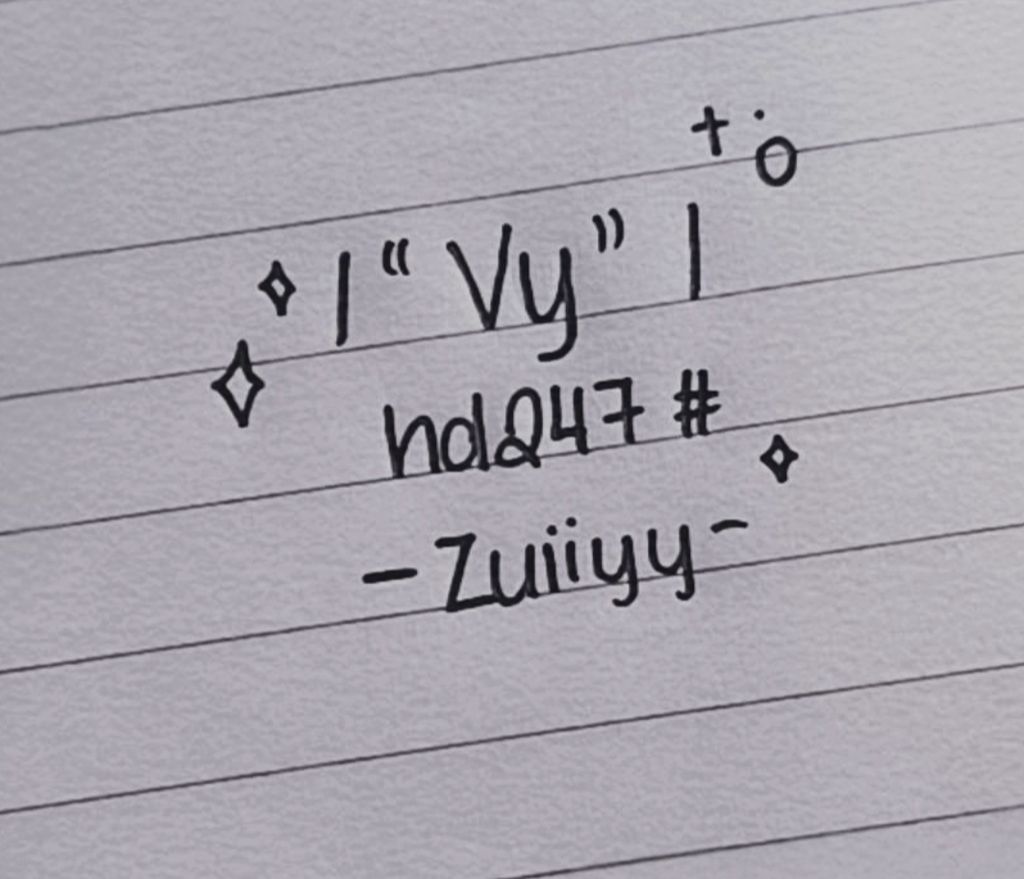 | “ Vy ” |
hd247 #
- Zuiiyy -